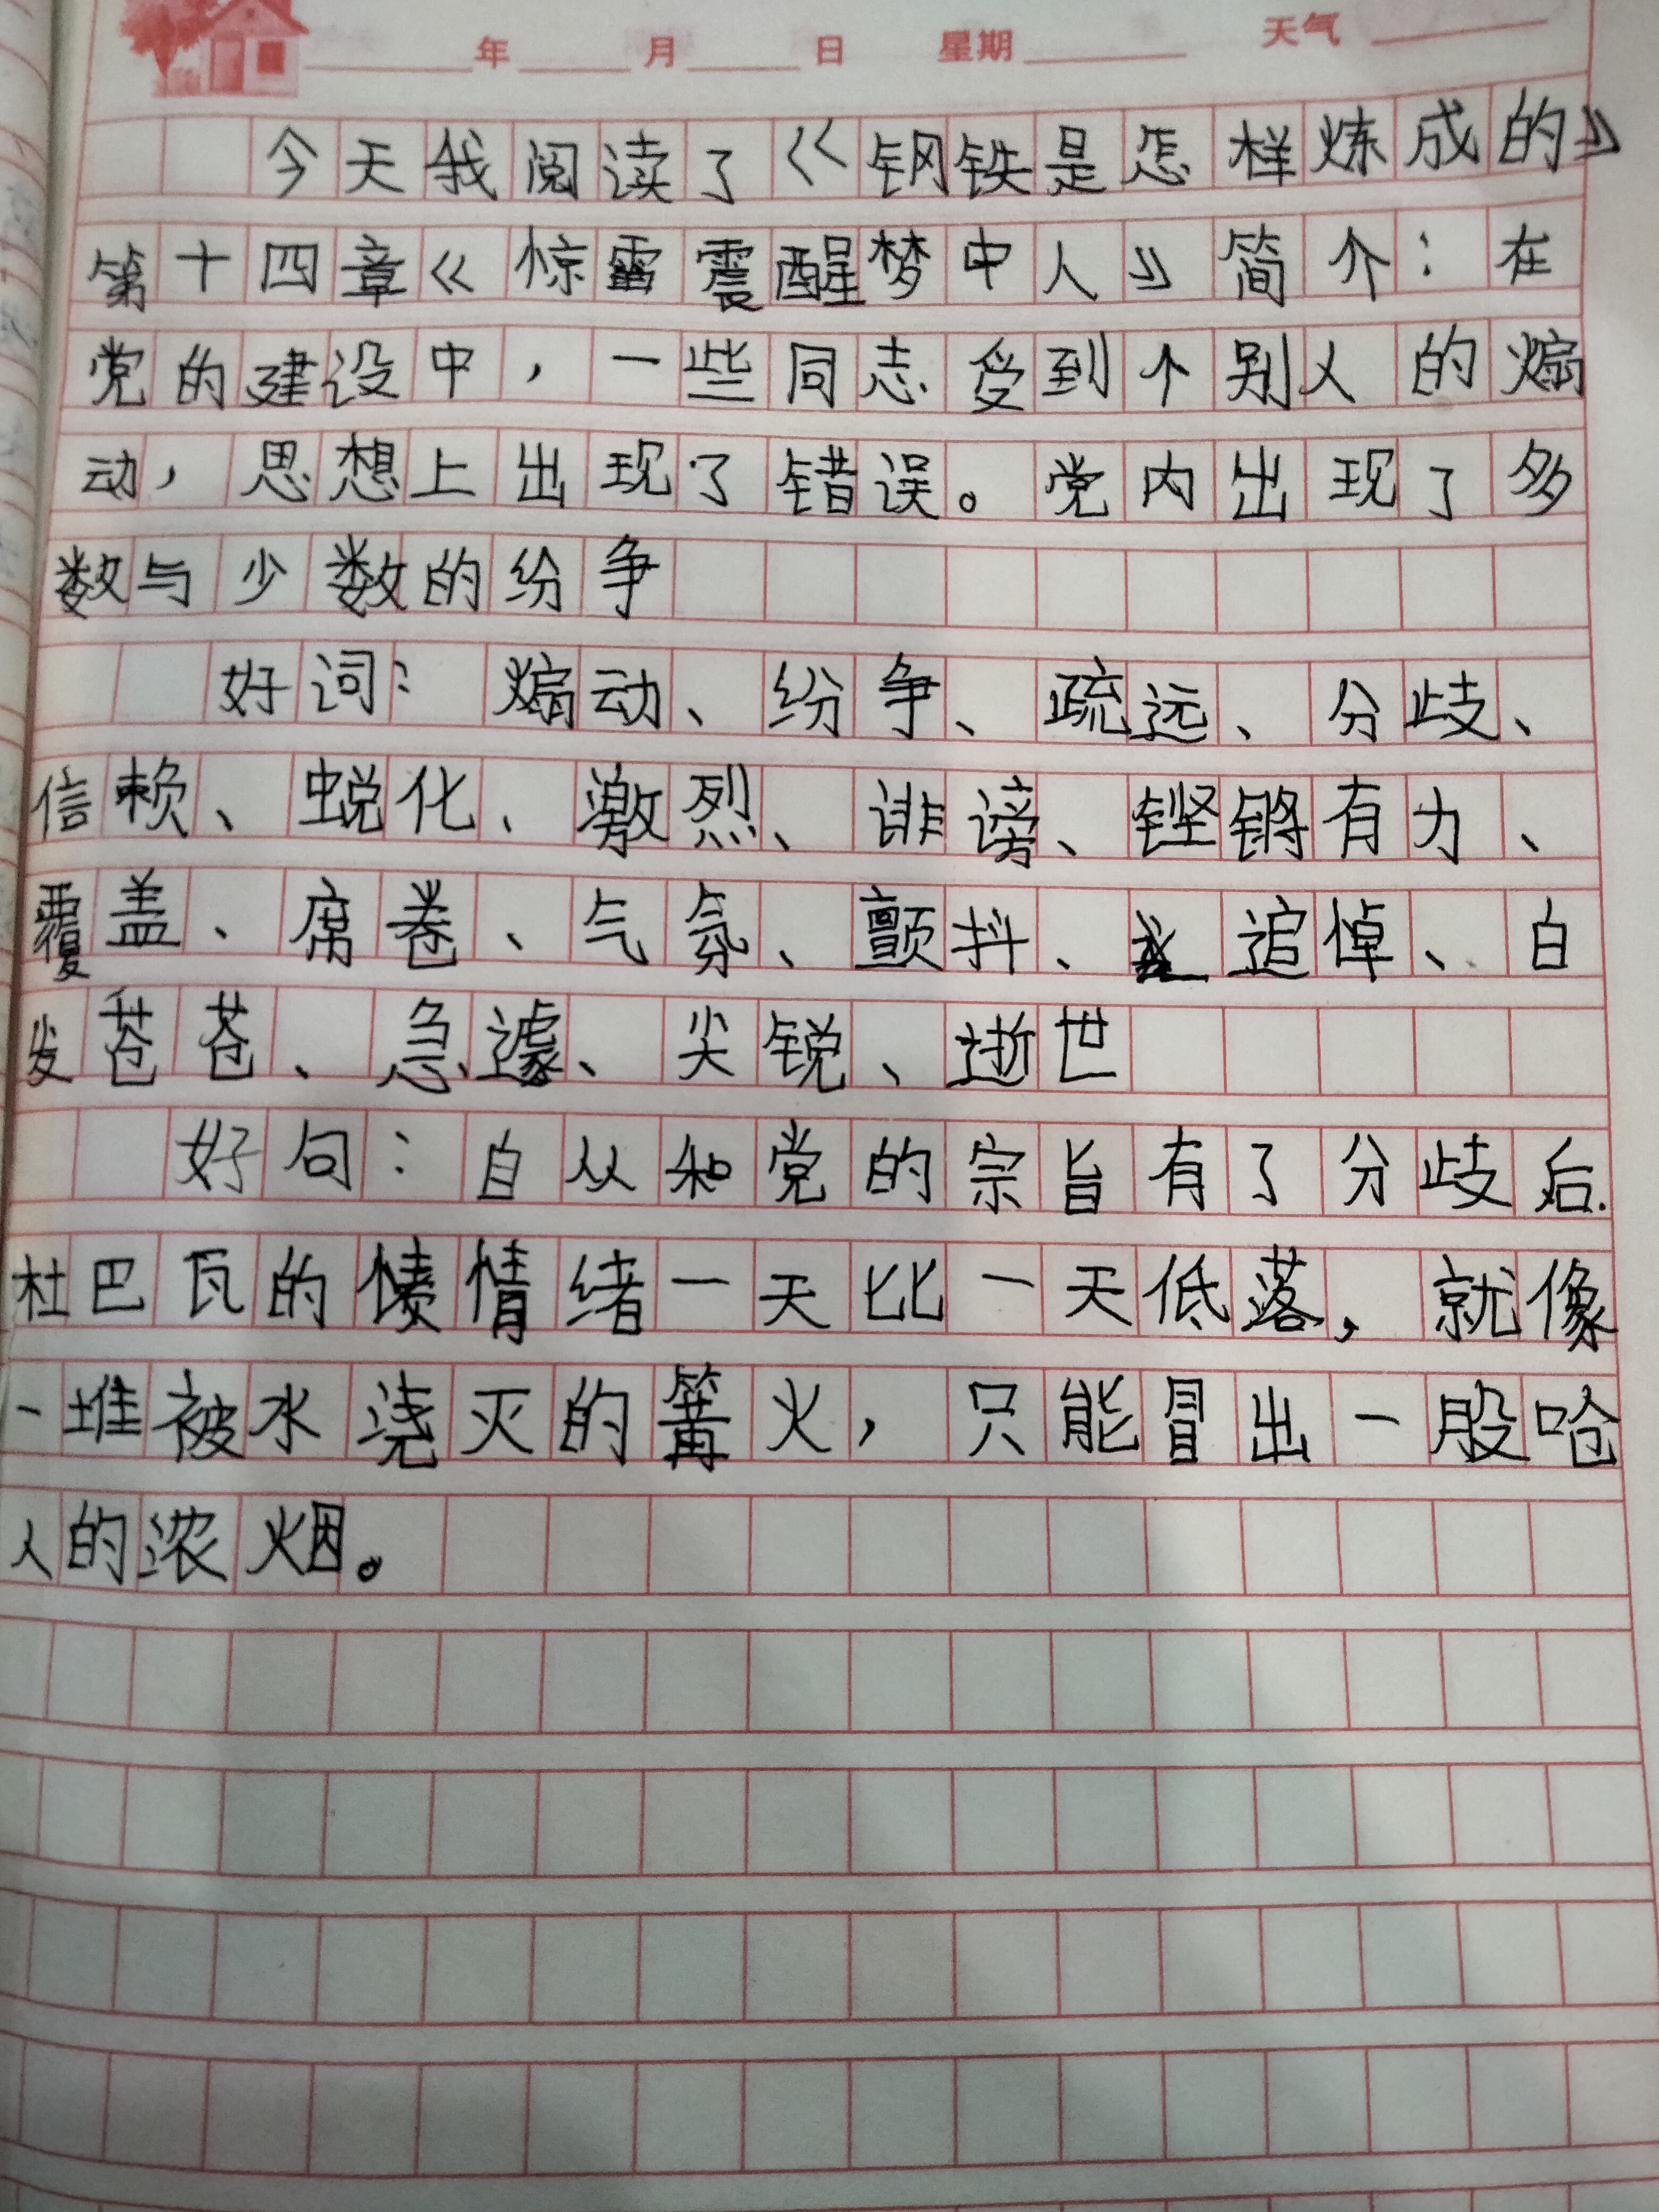 年 月 日 星期 天气
今天我阅读了《钢铁是怎样炼成的》
第十四章《惊雷震醒梦中人》简介：在
党的建设中，一些同志受到个别人的煽
动，思想上出现了错误。党内出现了多
数与少数的纷争
好词：煽动、纷争、疏远、分歧、
信赖、蜕化、激烈、诽谤、铿锵有力、
覆盖、席卷、气氛、颤抖、追悼、白
发苍苍、急遽、尖锐、逝世
好句：自从和党的宗旨有了分歧后.
杜巴瓦的情绪一天比一天低落，就像
一堆被水浇灭的篝火，只能冒出一股呛
人的浓烟。